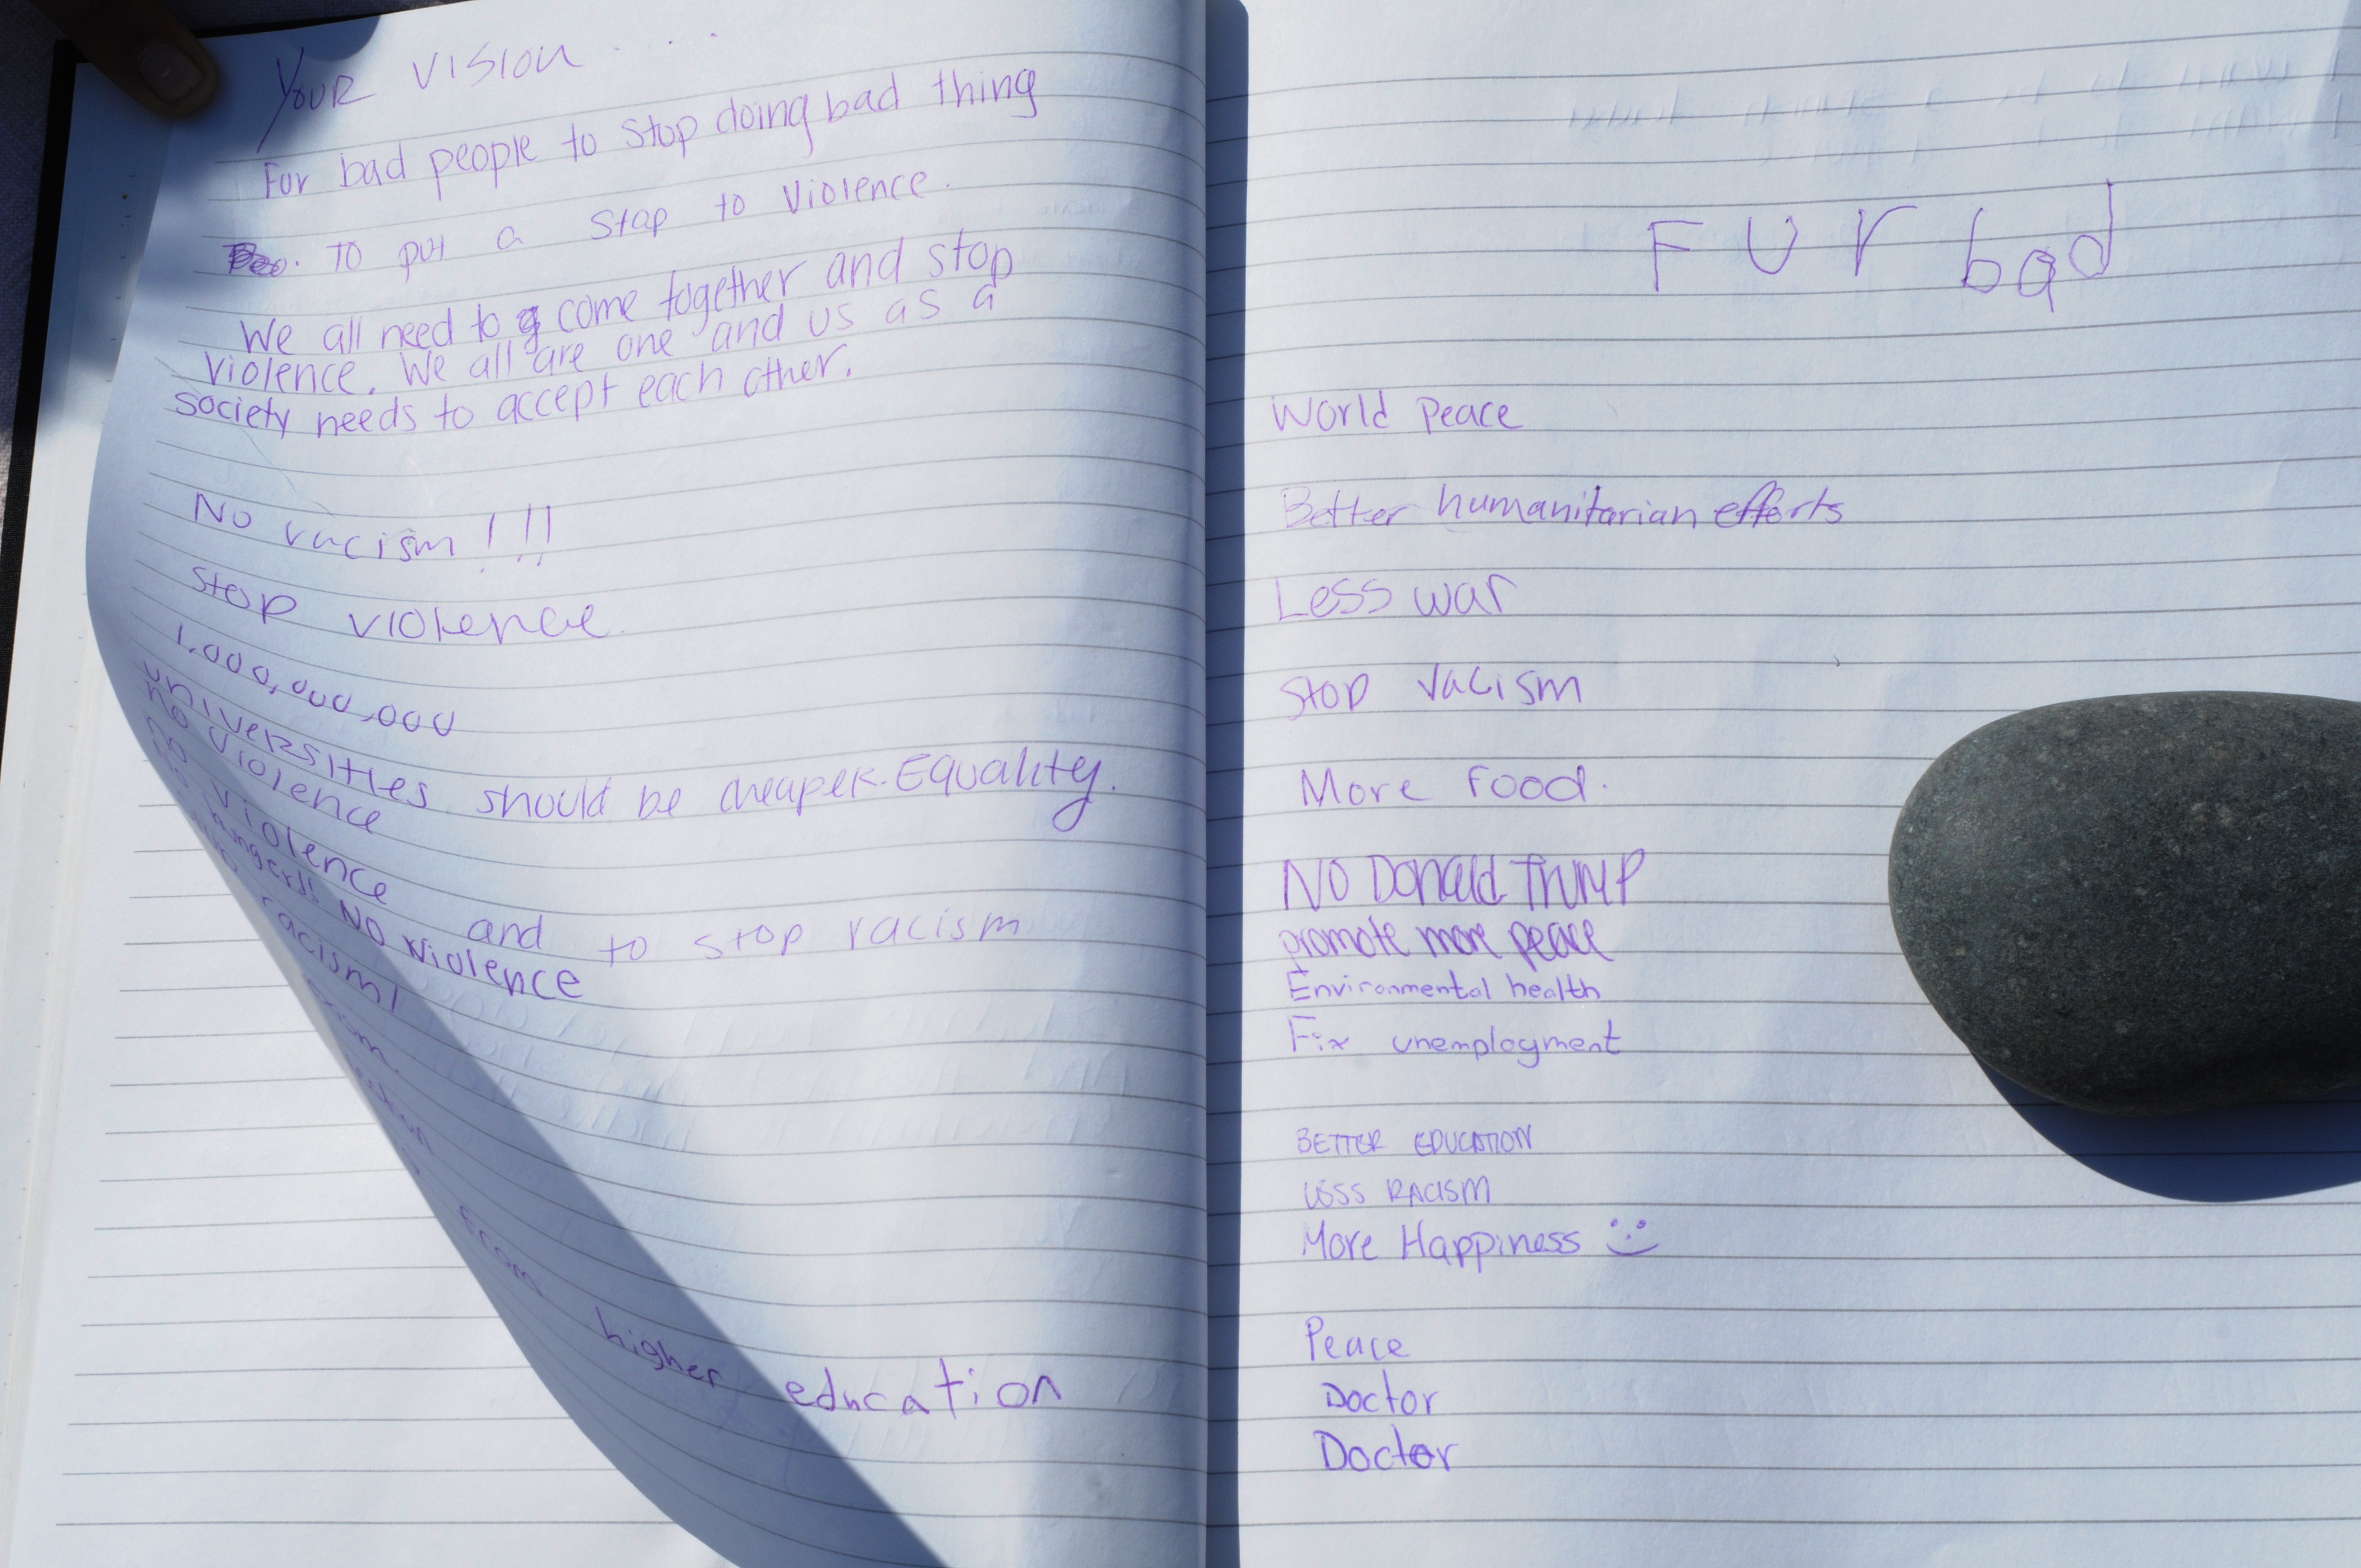 YOUR VISION ....
For bad people to stop doing bad thing
. To put a stap to violence.
We all need to come together and stop
violence. We all are one and us as a
society needs to accept each other.
No racism!!!
Stop violence.
1,000,000,000
universities should be cheaper. Equality.
no violence
no violence and to stop racism
hunger!! NO violence
No racism!
from higher education
FUr bad
World Peace
Better humanitarian efforts
Less war
Stop racism
More Food.
NO Donald TRUMP
promote more peace
Environmental health
Fix unemployment
BETTER EDUCATION
LESS RACISM
More Happiness :)
Peace
Doctor
Doctor